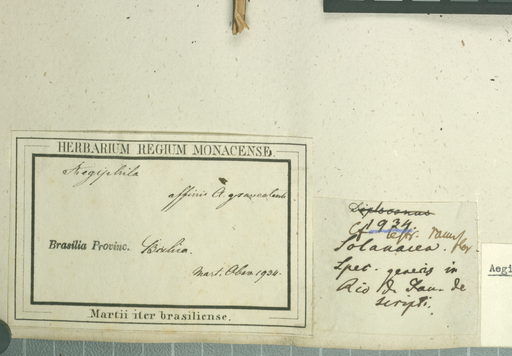 HERBARIUM REGIUM MONACENSE.
Aegiphila
affinis A. graveolenti
Brasilia Provinc. Bahia.
Mart. Obs. 1934.
Martii iter brasiliense.
1934
Solanacea.
Spec. generis in
Rio de Jan. de
scripti.
Aegi